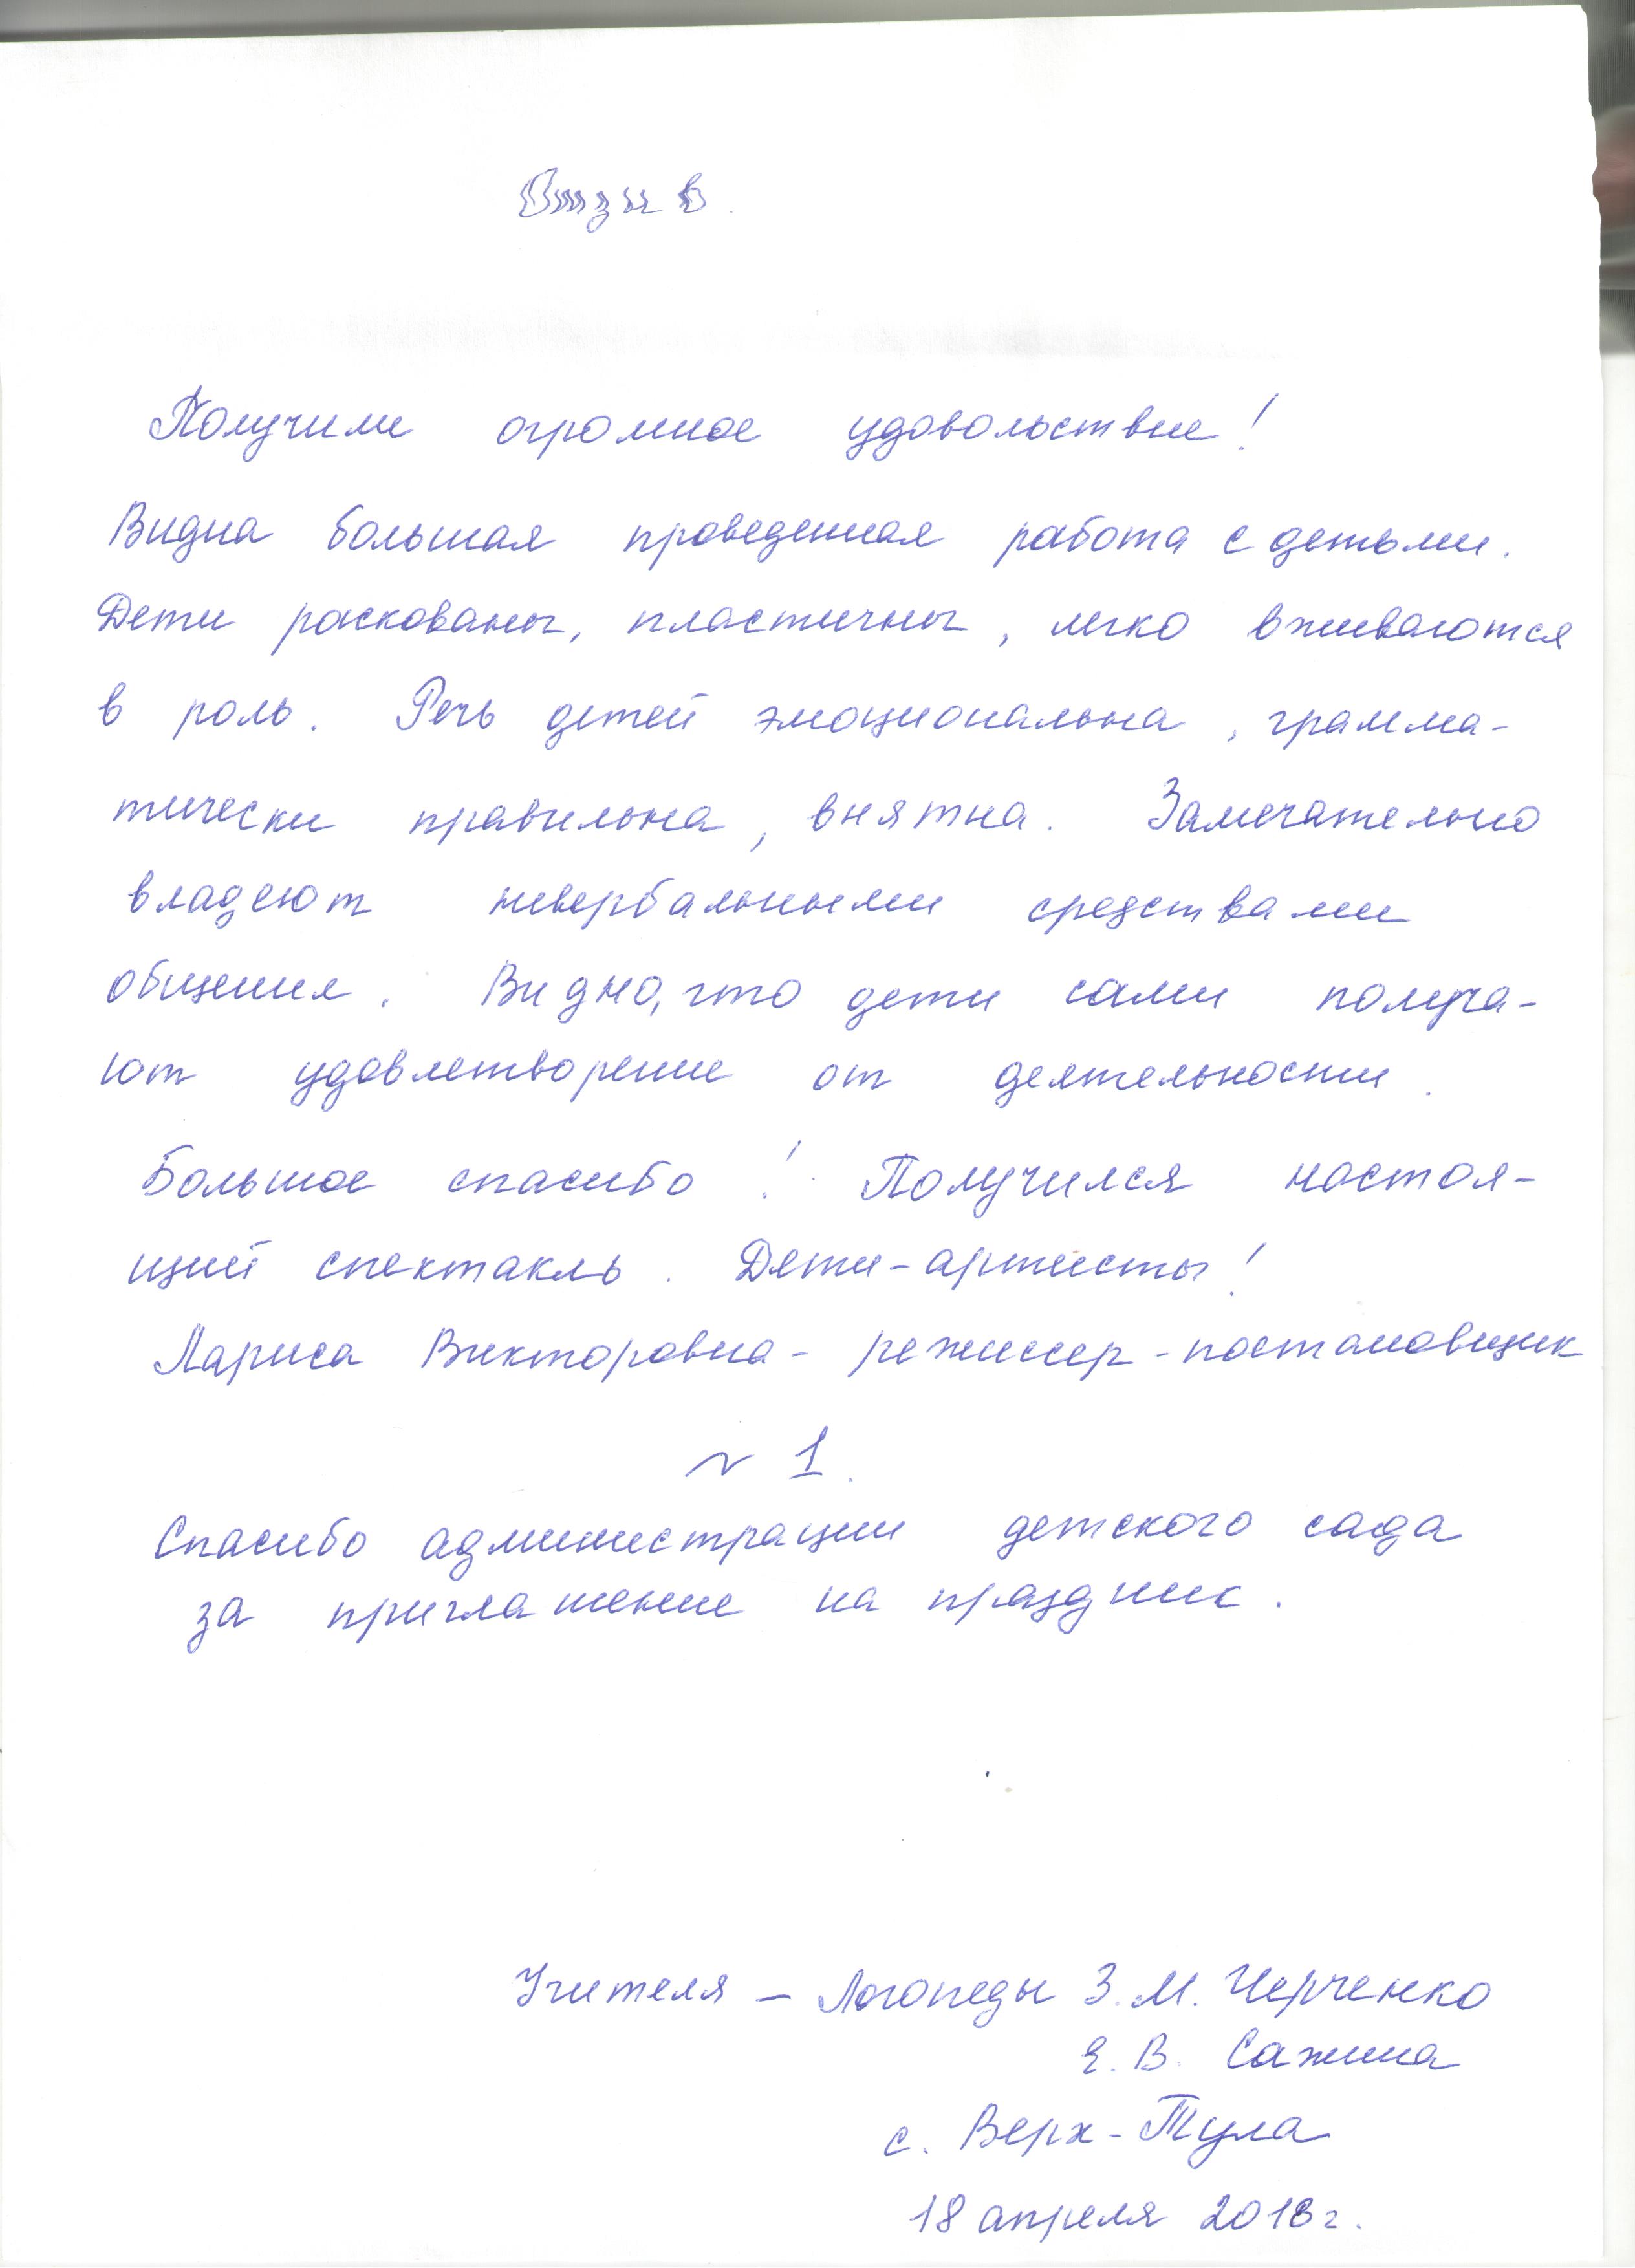 Отзыв.
Получили огромное удовольствие!
Видна большая проведенная работа с детьми.
Дети раскованы, пластичны, легко вживаются
в роль. Речь детей эмоциональна, грамма-
тически правильна, внятна. Замечательно
владеют невербальными средствами
общения. Видно, что дети сами получа-
ют удовлетворение от деятельности.
Большое спасибо! Получился настоя-
щий спектакль. Дети-артисты!
Лариса Викторовна - режиссер-постановщик
N 1.
Спасибо администрации детского сада
за приглашение на праздник.
Учителя - Логопеды З.М. Черченко
Е.В. Сажина
с. Верх-Тула
18 апреля 2018г.